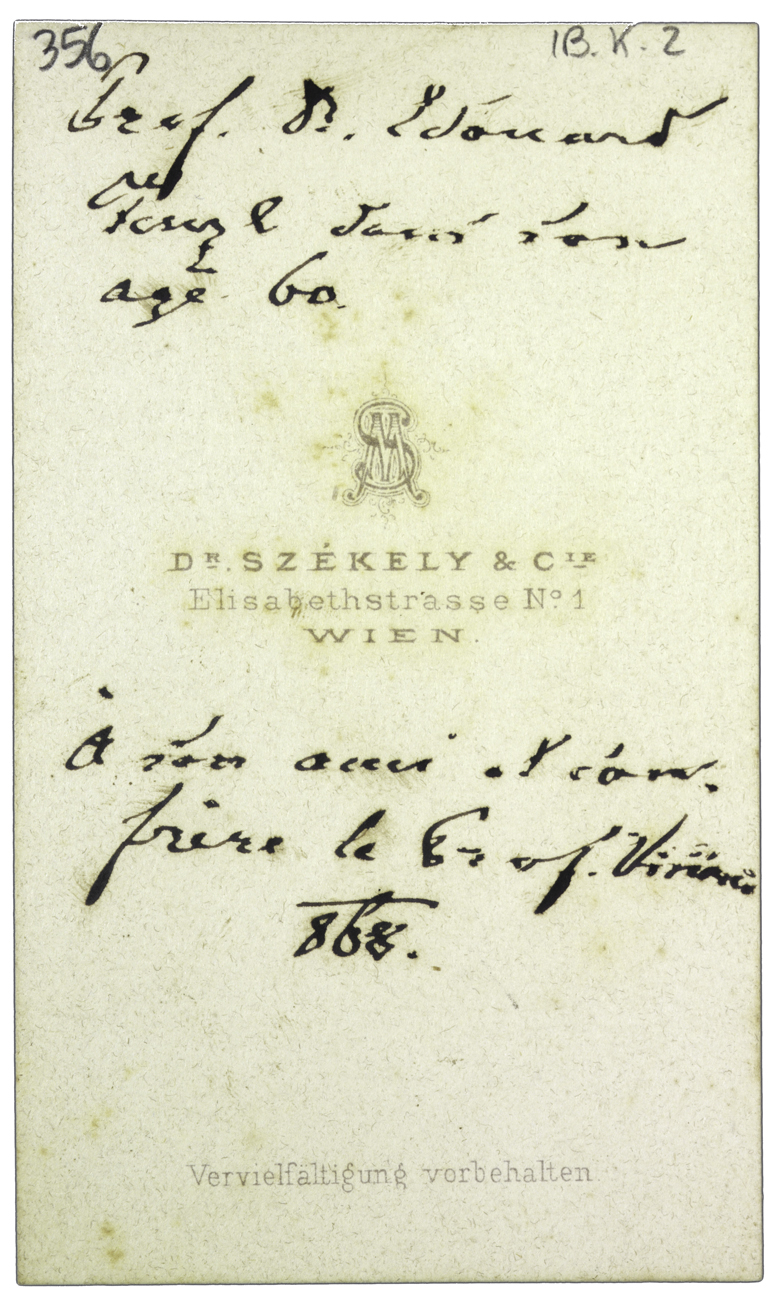 356
1B. K. 2
Prof. Dr. Edouard
Fenzl dans son
age 60.
SM
DR. SZÉKELY & CIE
Elisabethstrasse No. 1
WIEN.
À son ami et con-
frère le Prof.
868.
Vervielfältigung vorbehalten